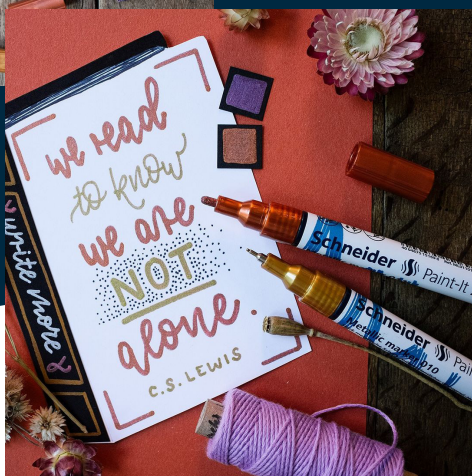 we read
to know
we are
NOT
alone.
C.S. LEWIS
write more
Schneider
Paint-It
Schneider
Metallic marker 010